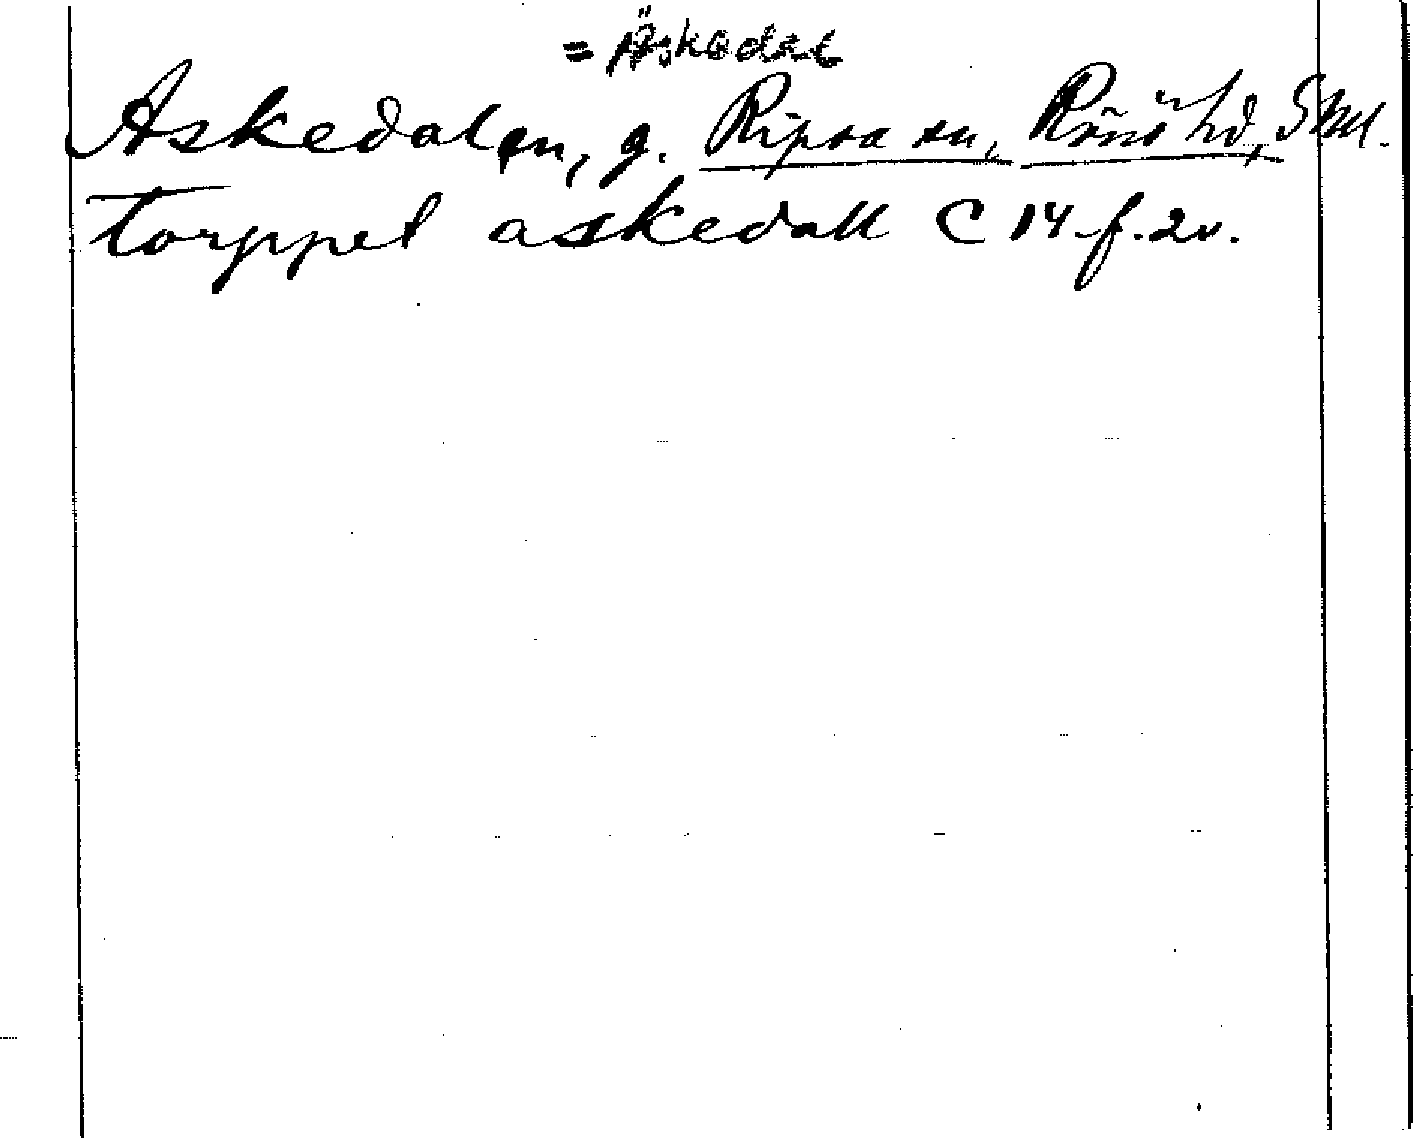 = Äskedal
Askedalen, g. Ripsa sn, Rönö hd, Sdml.
torppet askedall C 14 f. 2v.